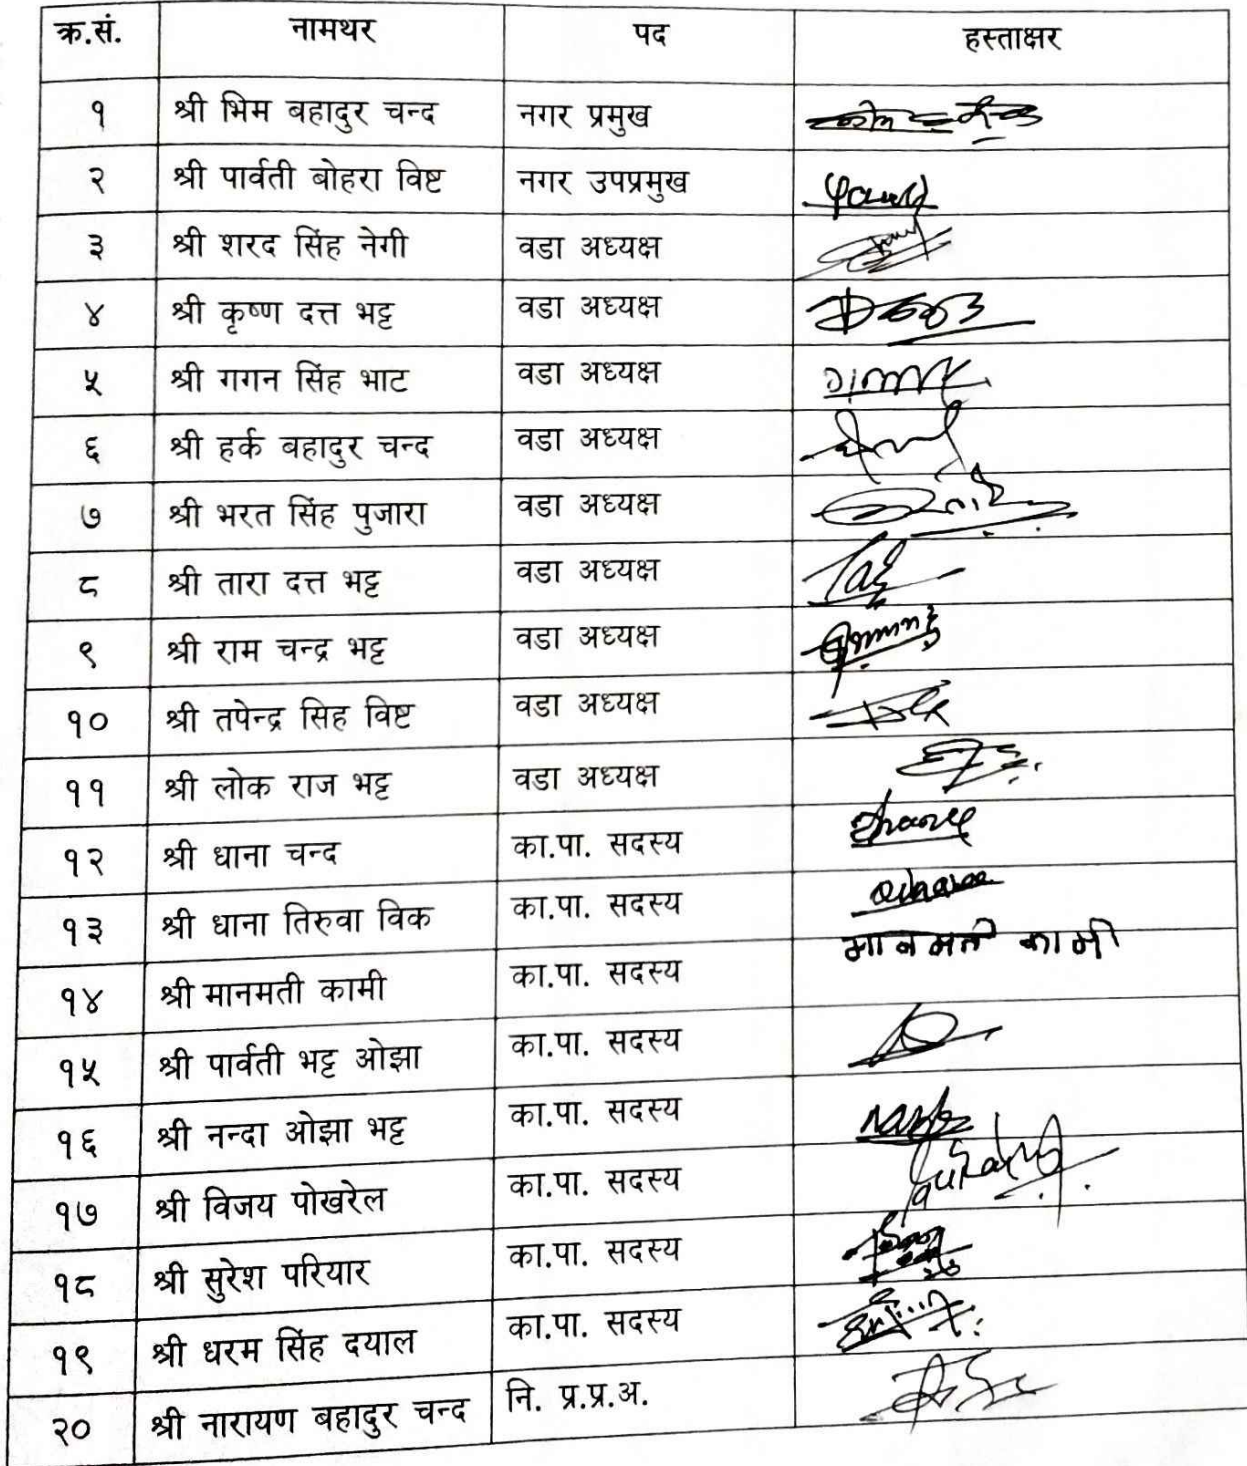 क्र.सं. नामथर पद हस्ताक्षर
१ श्री भिम बहादुर चन्द नगर प्रमुख
२ श्री पार्वती बोहरा विष्ट नगर उपप्रमुख
३ श्री शरद सिंह नेगी वडा अध्यक्ष
४ श्री कृष्ण दत्त भट्ट वडा अध्यक्ष
५ श्री गगन सिंह भाट वडा अध्यक्ष
६ श्री हर्क बहादुर चन्द वडा अध्यक्ष
७ श्री भरत सिंह पुजारा वडा अध्यक्ष
८ श्री तारा दत्त भट्ट वडा अध्यक्ष
९ श्री राम चन्द्र भट्ट वडा अध्यक्ष
१० श्री तपेन्द्र सिह विष्ट वडा अध्यक्ष
११ श्री लोक राज भट्ट वडा अध्यक्ष
१२ श्री धाना चन्द का.पा. सदस्य
१३ श्री धाना तिरुवा विक का.पा. सदस्य
१४ श्री मानमती कामी का.पा. सदस्य मानमती कामी
१५ श्री पार्वती भट्ट ओझा का.पा. सदस्य
१६ श्री नन्दा ओझा भट्ट का.पा. सदस्य
१७ श्री विजय पोखरेल का.पा. सदस्य
१८ श्री सुरेश परियार का.पा. सदस्य
१९ श्री धरम सिंह दयाल का.पा. सदस्य
२० श्री नारायण बहादुर चन्द नि. प्र.प्र.अ.